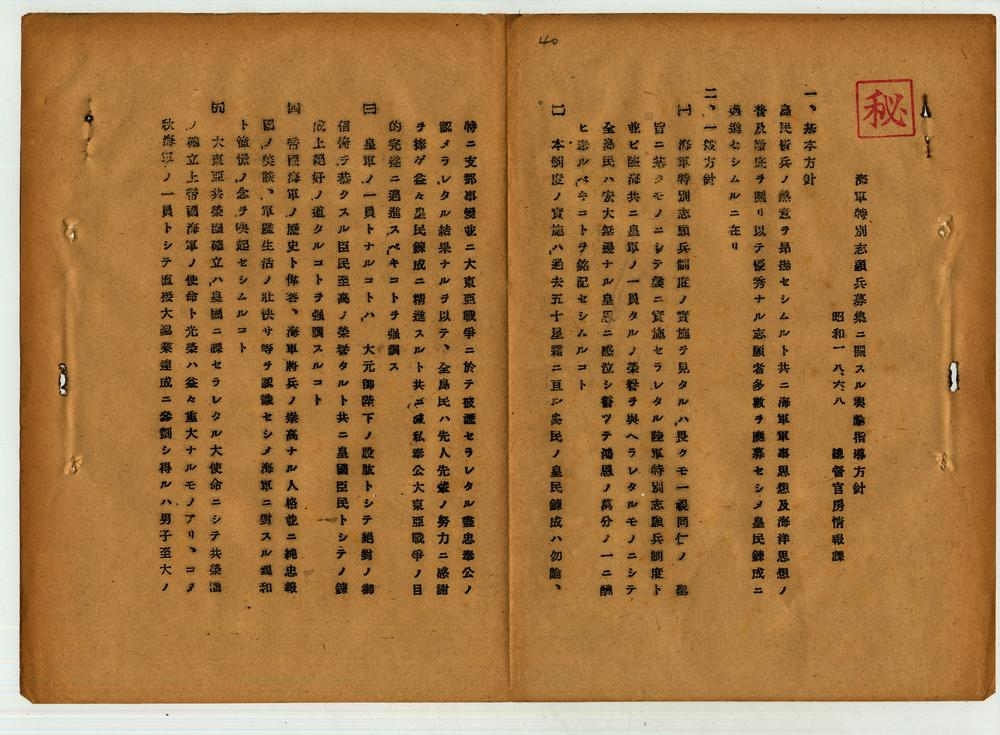 40
秘
海軍特別志願兵募集ニ關スル輿論指導方針
昭和一八、六、八 總督官房情報課
一、基本方針
島民皆兵ノ熱意ヲ昂揚セシムルト共ニ海軍軍事思想及海洋思想ノ
普及徹底ヲ圖リ以テ優秀ナル志願者多數ヲ應募セシメ皇民錬成ニ
邁進セシムルニ在リ
二、一般方針
(一) 海軍特別志願兵制度ノ實施ヲ見タルハ畏クモ一視同仁ノ 聖
旨ニ基クモノニシテ曩ニ實施セラレタル陸軍特別志願兵制度ト
並ビ陸海共ニ皇軍ノ一員タルノ榮譽ヲ與ヘラレタルモノニシテ
全島民ハ宏大無邊ナル皇恩ニ感泣シ誓ツテ鴻恩ノ萬分ノ一ニ酬
ヒ奉ルベキコトヲ銘記セシムルコト
(二) 本制度ノ實施ハ過去五十星霜ニ亘ル島民ノ皇民錬成ハ勿論、
特ニ支那事變並ニ大東亞戰爭ニ於テ披瀝セラレタル盡忠奉公ノ
認メラレタル結果ナルヲ以テ、全島民ハ先人先輩ノ努力ニ感謝
ヲ捧ゲ益々皇民錬成ニ精進スルト共ニ滅私奉公大東亞戰爭ノ目
的完遂ニ邁進スベキコトヲ强調ス
(三) 皇軍ノ一員トナルコトハ 大元帥陛下ノ股肱トシテ絕對ノ御
信倚ヲ恭クスル臣民至高ノ榮譽タルト共ニ皇國臣民トシテノ錬
成上絕好ノ道タルコトヲ强調スルコト
(四) 帝國海軍ノ歷史ト偉容、海軍將兵ノ崇高ナル人格並ニ純忠報
國ノ美談、軍艦生活ノ壯快サ等ヲ認識セシメ海軍ニ對スル親和
ト憧憬ノ念ヲ喚起セシムルコト
(五) 大東亞共榮圈確立ハ皇國ニ課セラレタル大使命ニシテ共榮圈
ノ確立上帝國海軍ノ使命ト光榮ハ益々重大ナルモノアリ、コノ
秋海軍ノ一員トシテ直接大業達成ニ參劃シ得ルハ男子至大ノ